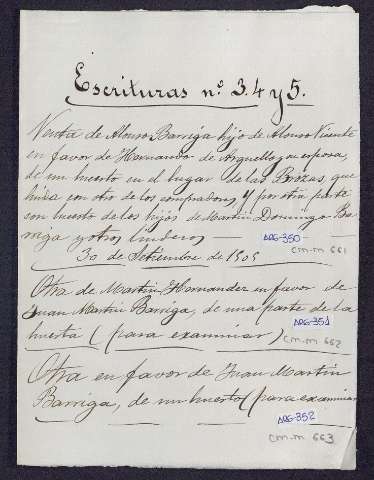 Escrituras nº. 3. 4 y 5.
Venta de Alonso Barriga hijo de Alonso Vicente
en favor de Hernando de Arguello y su esposa,
de un huerto en el lugar de las Brozas, que
linda con otro de los compradores y por otra parte
con huerto de los hijos de Martin Domingo Ba-
rriga y otros linderos
30 de Setiembre de 1505
ARG-350
CM.M 661
Otra de Martin Hernandez en favor de
Juan Martin Barriga, de una parte de la
huerta (para examinar)
ARG-351
CM.M 662
Otra en favor de Juan Martin
Barriga, de un huerto (para examinar
ARG-352
CM.M 663